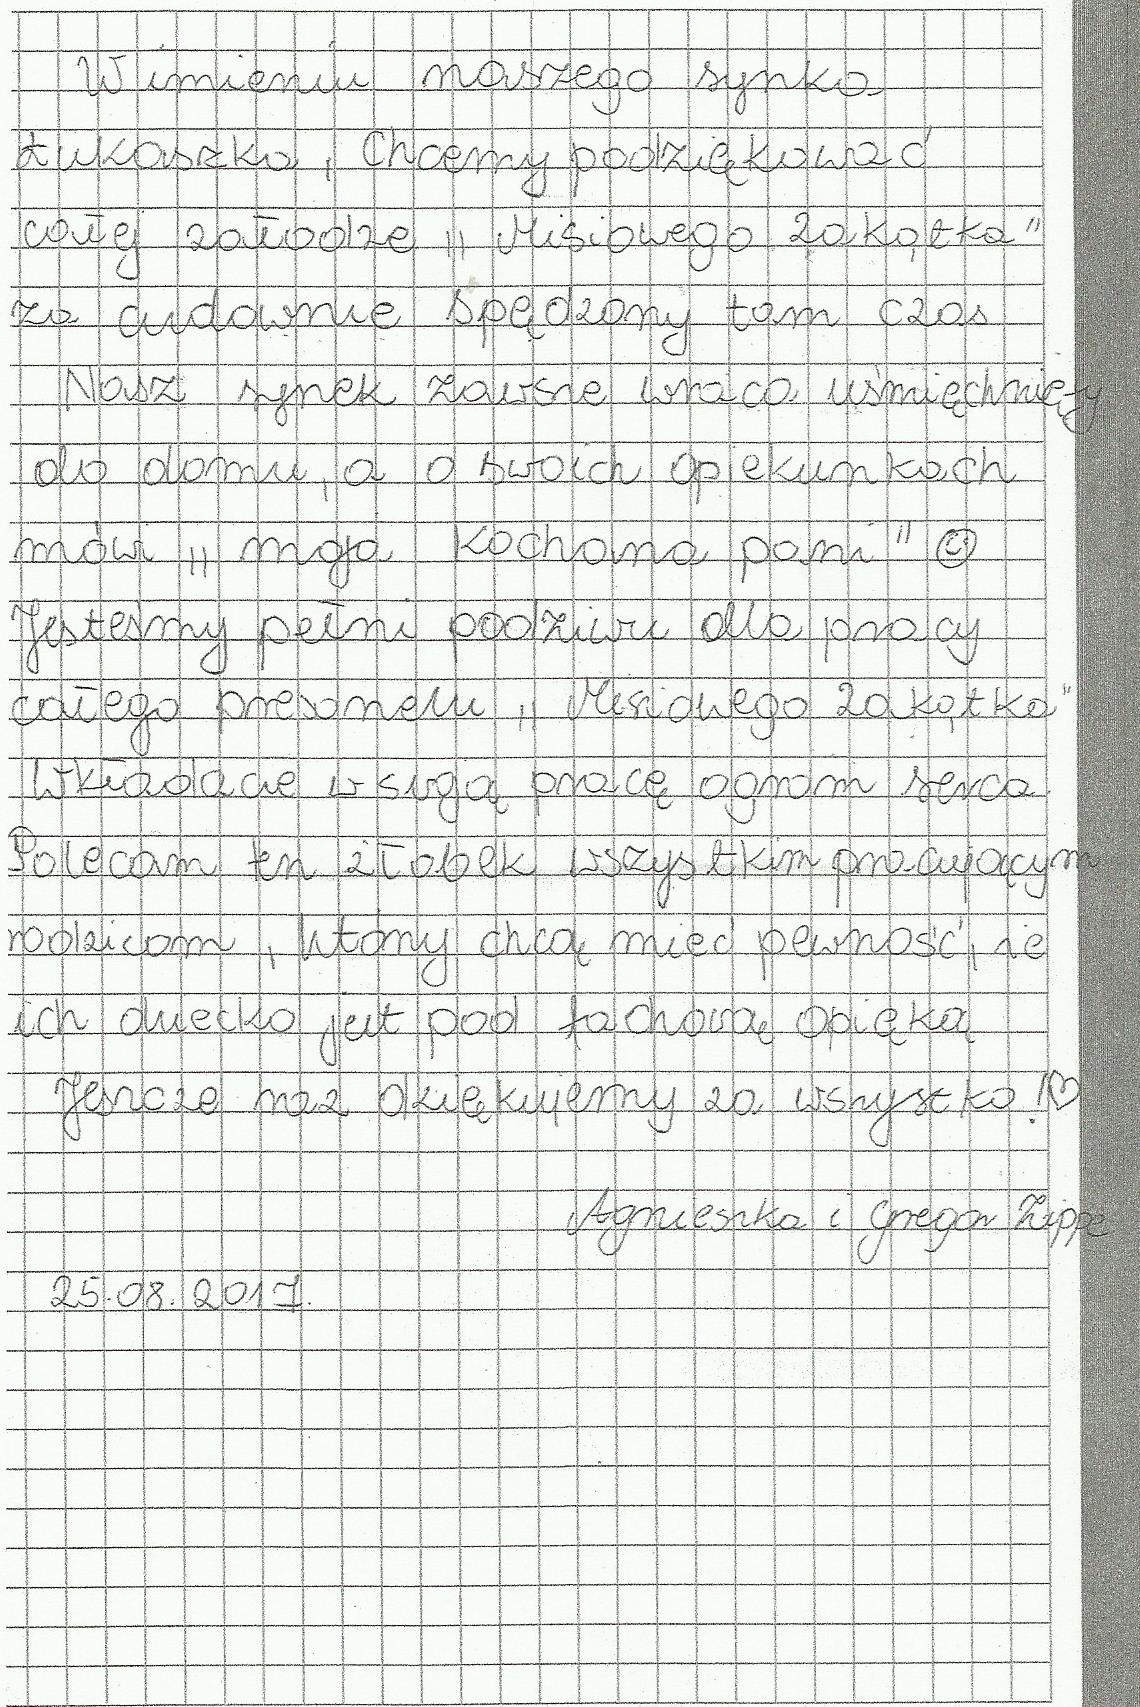 W imieniu naszego synka
Łukaszka, Chcemy podziękować
całej załodze „Misiowego Zakątka"
za cudownie spędzony tam czas
Nasz synek zawsze wraca uśmięchnięty
do domu, a o swoich opiekunkach
mówi „moja kochana pani" ☺
Jesteśmy pełni podziwu dla pracy
całego presonelu „Misiowego Zakątka"
Wkładacie w swoją pracę ogrom serca
Polecam ten żłobek wszystkim pracującym
rodzicom, którzy chcą mieć pewność, że
ich dziecko jest pod fachową opięką
Jeszcze raz dziękujemy za wszystko! ♡
Agnieszka i Gregor Zippe
25.08.2017.